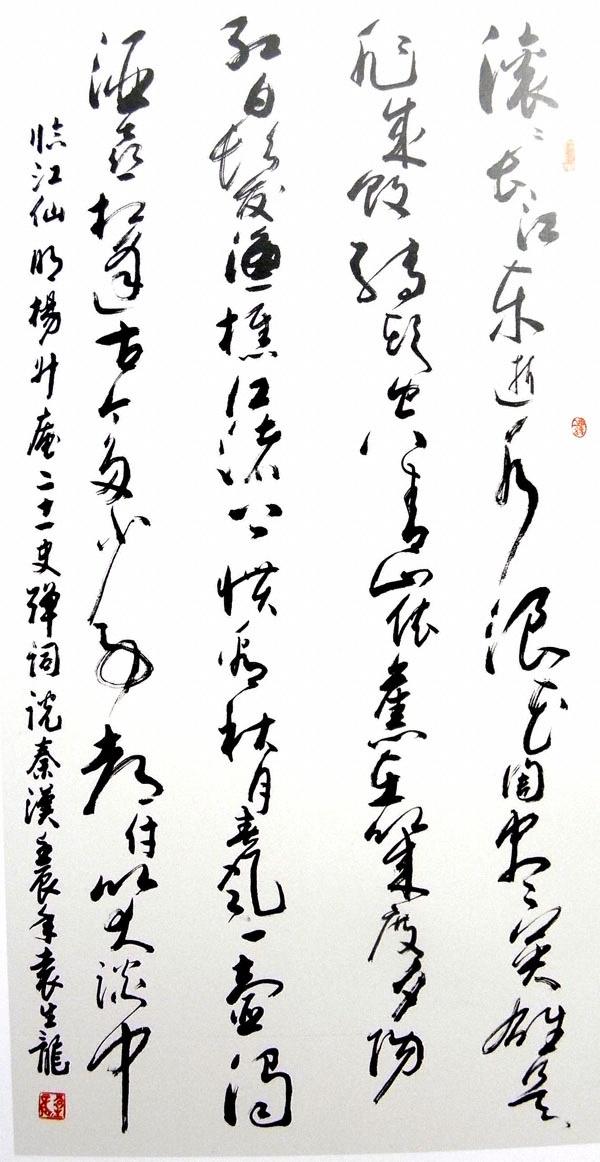 滚〻长江东逝水浪花淘尽〻英雄是
非成败转头空青山依旧在几度夕阳
红白发渔樵江渚上惯看秋月春风一壶浊
酒喜相逢古今多少事都付笑谈中
临江仙明杨升庵二十一史弹词说秦汉壬辰年袁生龙